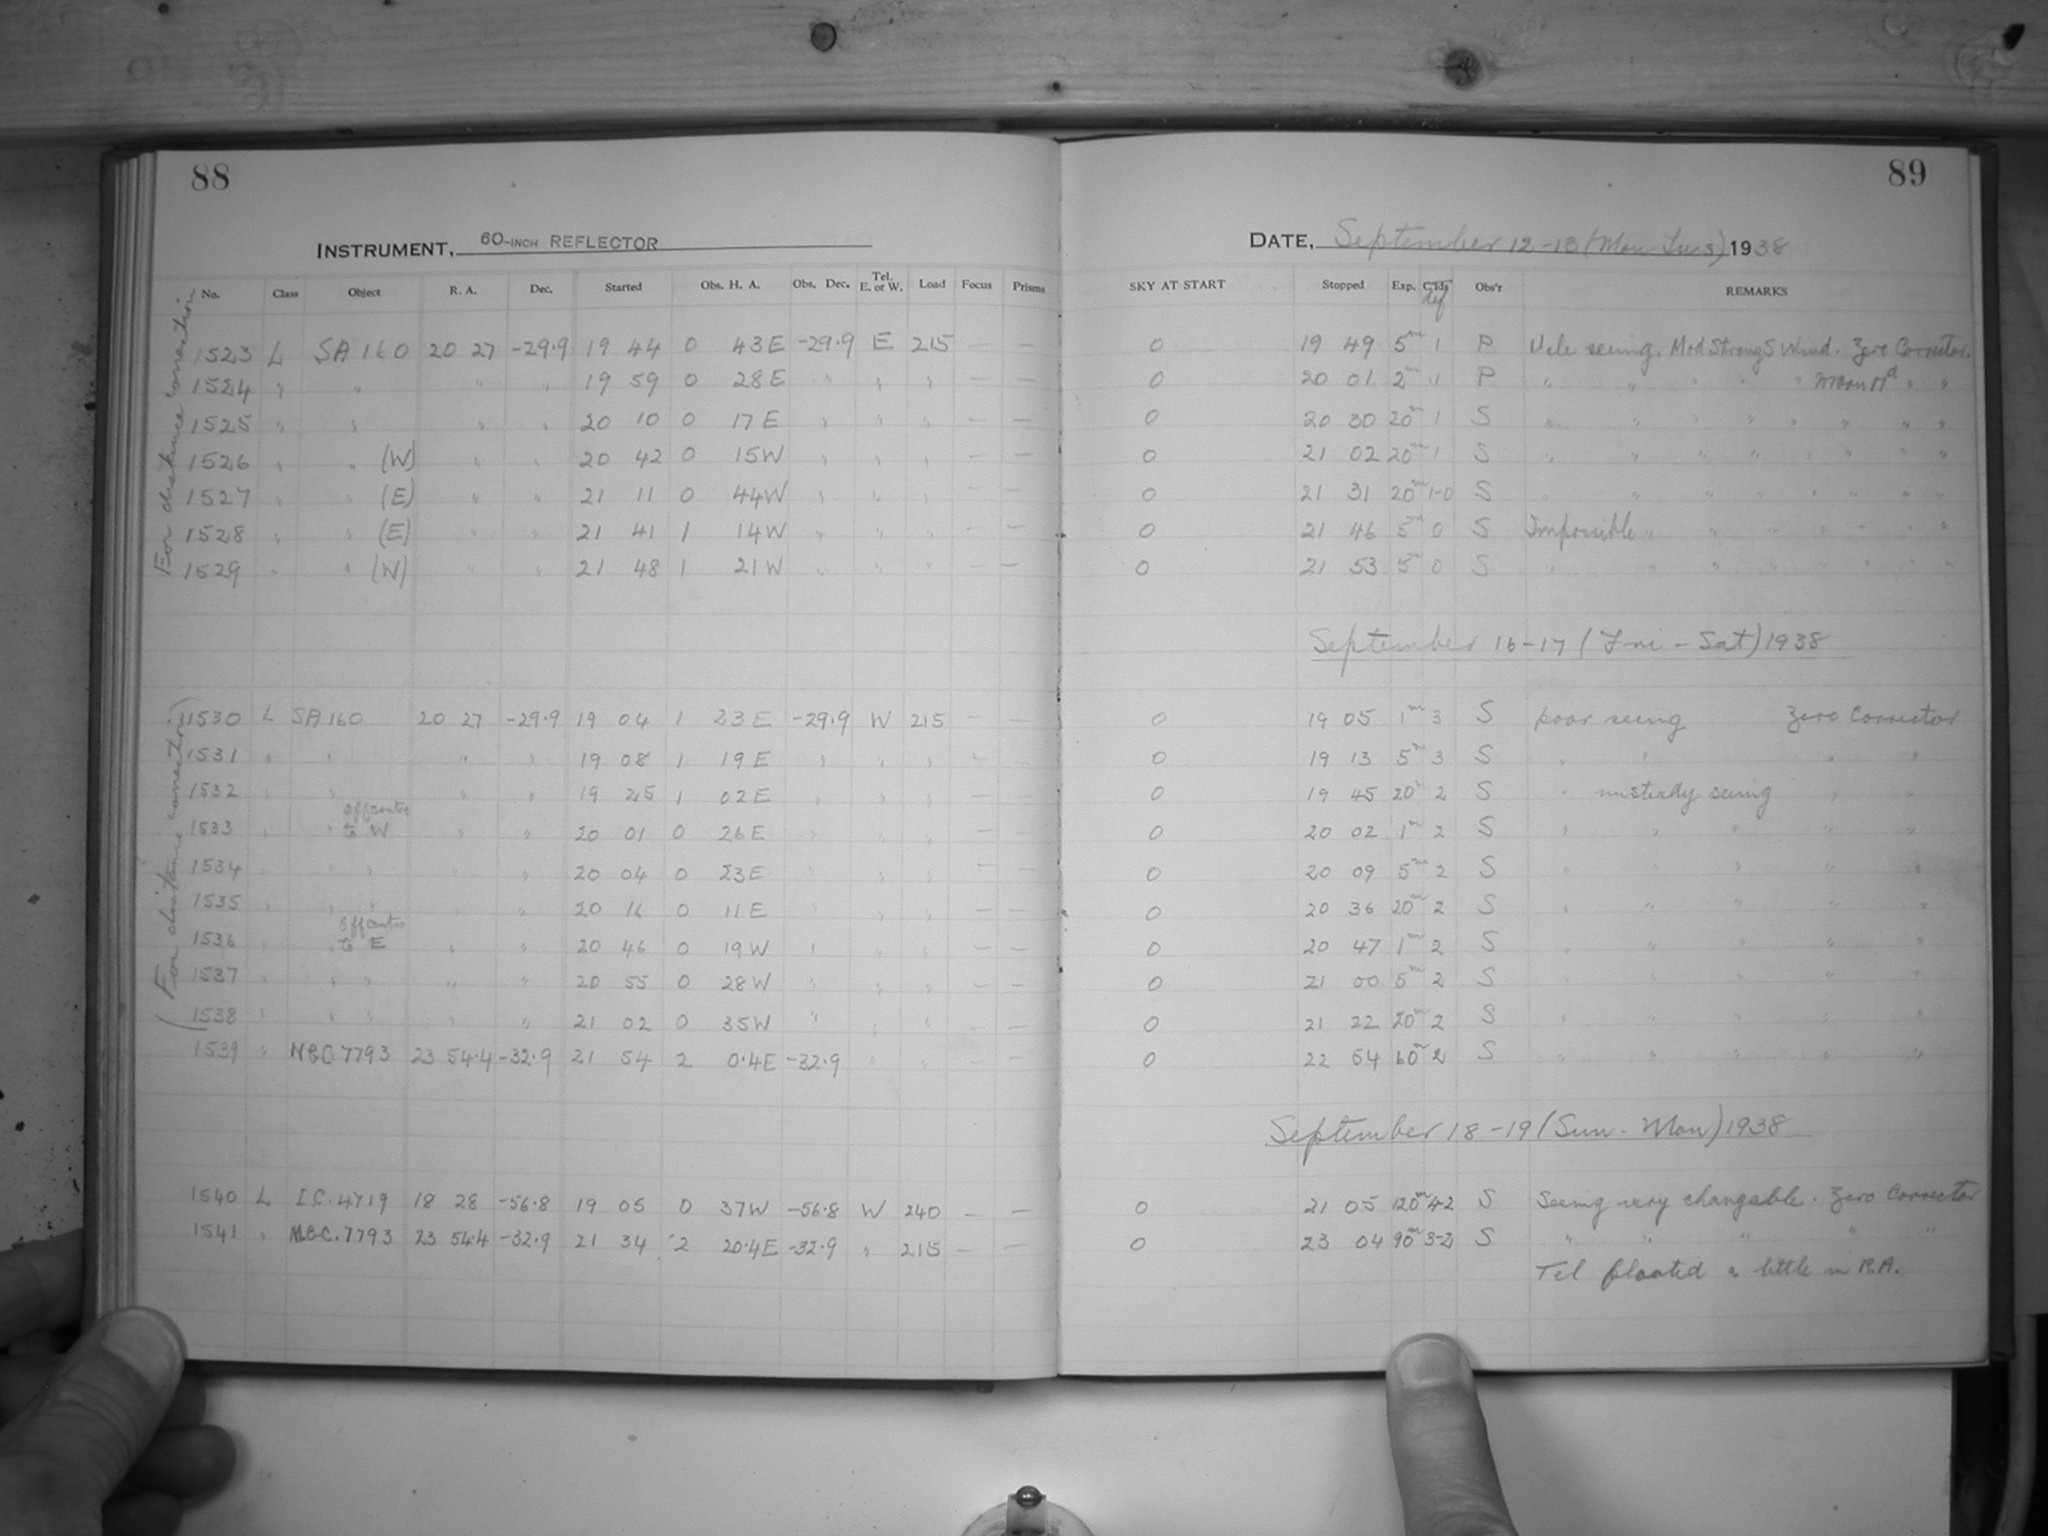 88
INSTRUMENT, 60-INCH REFLECTOR
No. Class Object R. A. Dec. Started Obs. H. A. Obs. Dec. Tel. E. or W. Load Focus Prisms
For distance correction
1523 L SA 160 20 27 -29.9 19 44 0 43 E -29.9 E 215 — —
1524 " " " " 19 59 0 28 E " " " — —
1525 " " " " 20 10 0 17 E " " " — —
1526 " " (W) " " 20 42 0 15 W " " " — —
1527 " " (E) " " 21 11 0 44 W " " " — —
1528 " " (E) " " 21 41 1 14 W " " " — —
1529 " " (W) " " 21 48 1 21 W " " " — —
(For distance correction)
1530 L SA 160 20 27 -29.9 19 04 1 23 E -29.9 W 215 — —
1531 " " " " 19 08 1 19 E " " " — —
1532 " " " " 19 25 1 02 E " " " — —
1533 " " offcentre to W " " 20 01 0 26 E " " " — —
1534 " " " " " 20 04 0 23 E " " " — —
1535 " " " " " 20 16 0 11 E " " " — —
1536 " " offcentre to E " " 20 46 0 19 W " " " — —
1537 " " " " " 20 55 0 28 W " " " — —
1538 " " " " " 21 02 0 35 W " " " — —
1539 " N.G.C. 7793 23 54.4 -32.9 21 54 2 0.4 E -32.9 " " — —
1540 L I.C. 4719 18 28 -56.8 19 05 0 37 W -56.8 W 240 — —
1541 " N.G.C. 7793 23 54.4 -32.9 21 34 2 20.4 E -32.9 " 215 — —
89
DATE, September 12-13 (Mon-Tues) 1938
SKY AT START Stopped Exp. Obs'r REMARKS
def
0 19 49 5m 1 P Vile seeing. Mod Strong S Wind. Zero Corrector.
0 20 01 2m 1 P " " " " " " "
0 20 30 20m 1 S " " " " " " " "
0 21 02 20m 1 S " " " " " " " "
0 21 31 20m 1-0 S " " " " " " " "
0 21 46 5m 0 S Impossible " " " " " " "
0 21 53 5m 0 S " " " " " " " "
September 16-17 (Fri - Sat) 1938
0 19 05 1m 3 S poor seeing Zero Corrector
0 19 13 5m 3 S " " " "
0 19 45 20m 2 S " unsteady seeing " "
0 20 02 1m 2 S " " " " "
0 20 09 5m 2 S " " " " "
0 20 36 20m 2 S " " " " "
0 20 47 1m 2 S " " " " "
0 21 00 5m 2 S " " " " "
0 21 22 20m 2 S " " " " "
0 22 54 60m 2 S " " " " "
September 18-19 (Sun - Mon) 1938
0 21 05 120m 4-2 S Seeing very changable. Zero Corrector
0 23 04 90m 3-2 S " " " " "
Tel floated a little in R.A.